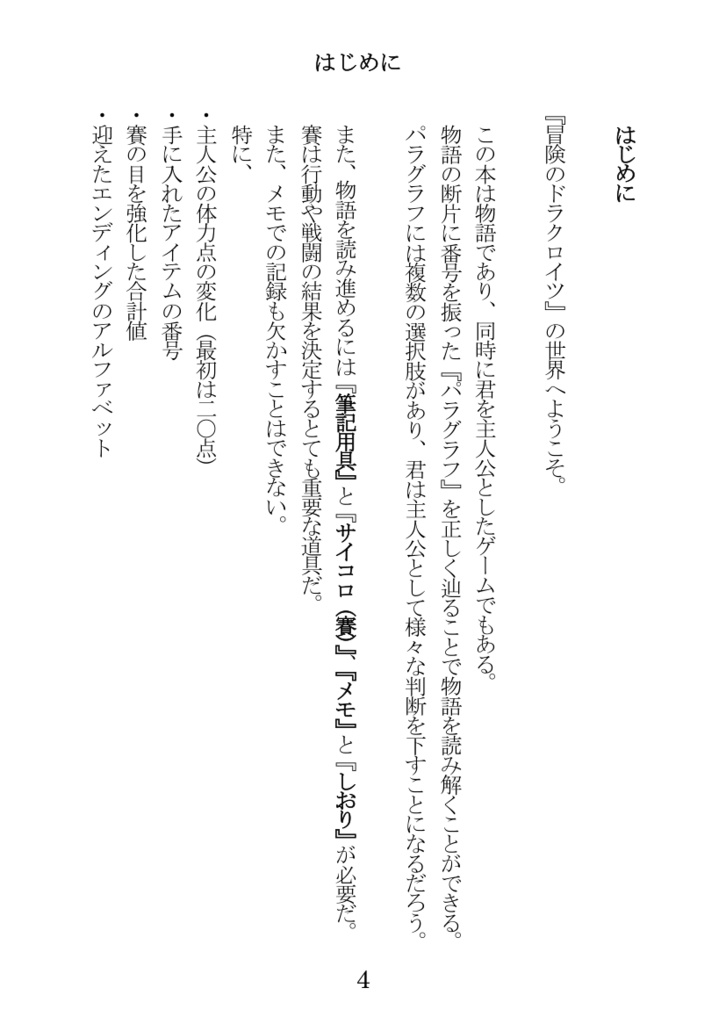 はじめに
はじめに
『冒険のドラクロイツ』の世界へようこそ。
この本は物語であり、同時に君を主人公としたゲームでもある。
物語の断片に番号を振った『パラグラフ』を正しく辿ることで物語を読み解くことができる。
パラグラフには複数の選択肢があり、君は主人公として様々な判断を下すことになるだろう。
また、物語を読み進めるには『筆記用具』と『サイコロ（賽）』、『メモ』と『しおり』が必要だ。
賽は行動や戦闘の結果を決定するとても重要な道具だ。
また、メモでの記録も欠かすことはできない。
特に、
・主人公の体力点の変化（最初は二〇点）
・手に入れたアイテムの番号
・賽の目を強化した合計値
・迎えたエンディングのアルファベット
4